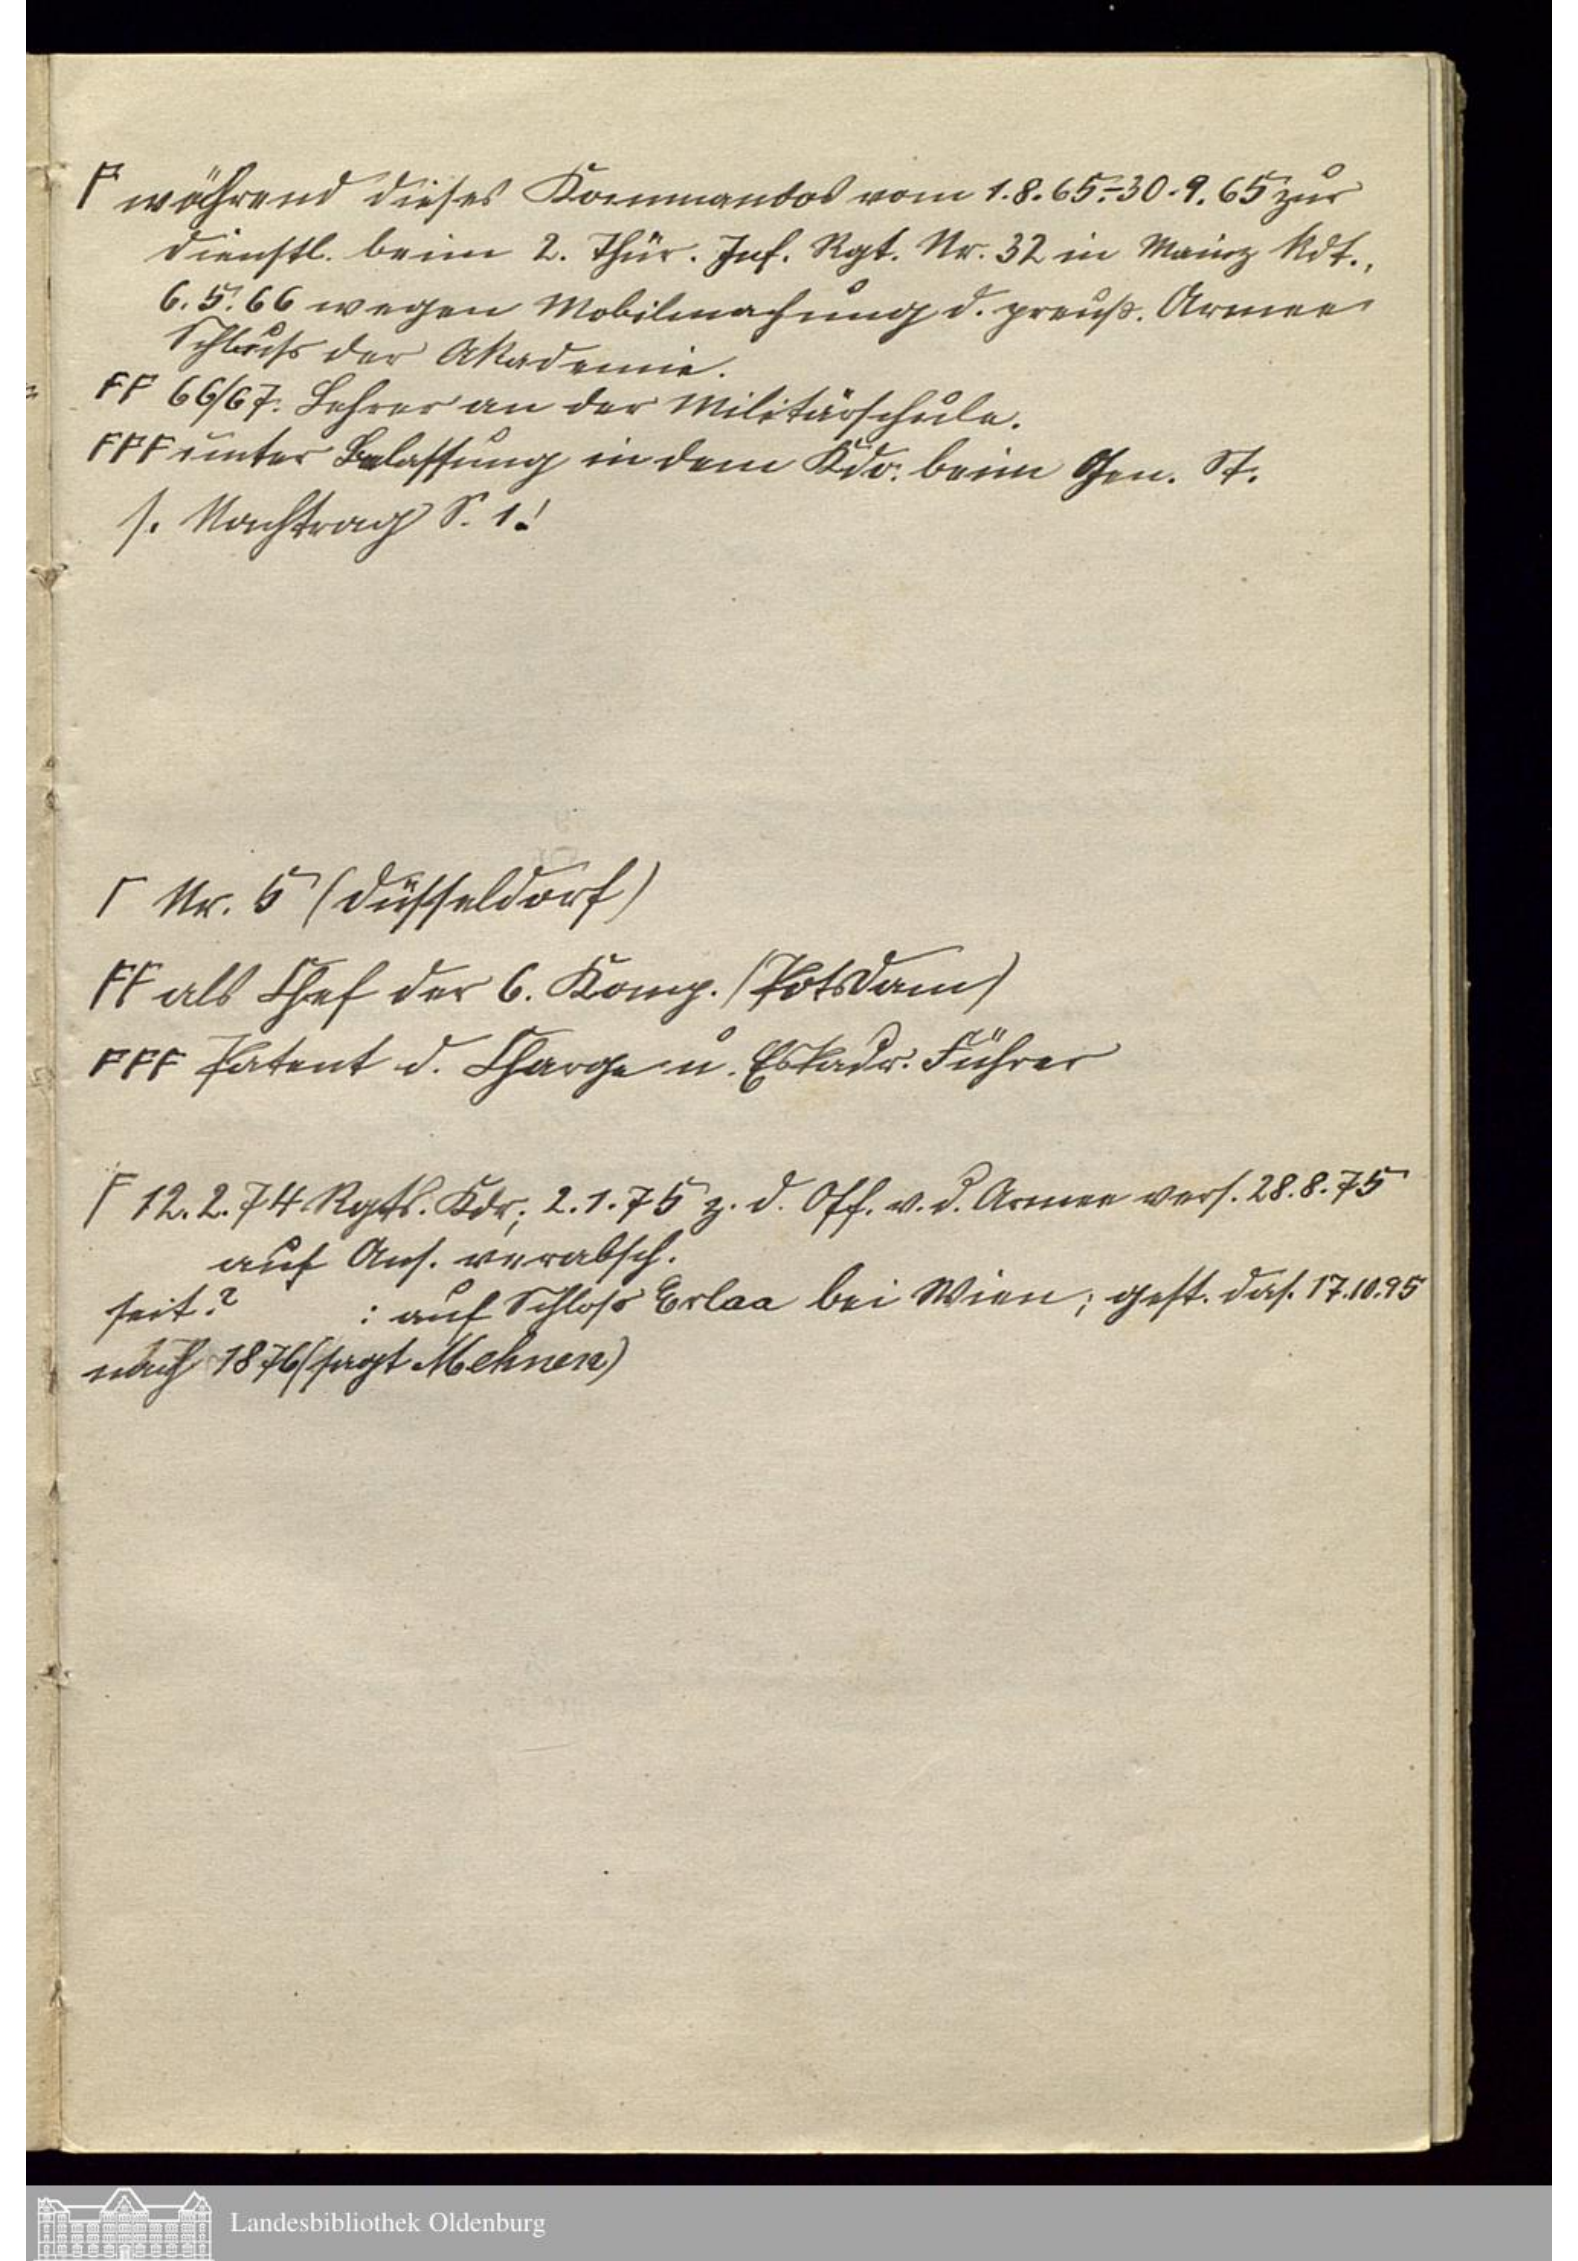 F während dieses Kommandos vom 1.8.65-30.9.65 zur
Dienstl. beim 2. Thür. Inf. Rgt. Nr. 32 in Mainz kdt.,
6.5.66 wegen Mobilmachung d. preuß. Armee
Schluss der Akademie.
FF 66/67. Lehrer an der Militärschule.
FFF unter Belassung in dem Kdo. beim Gen. St.
s. Nachtrag S. 1!
Γ Nr. 5 (Düsseldorf)
FF als Chef der 6. Komp. (Potsdam)
FFF Patent d. Charge u. Eskadr. Führer
F 12.2.74 Rgts. Kdr; 2.1.75 z. d. Off. v. d. Armee vers. 28.8.75
auf Ans. verabsch.
seit? : auf Schloss Erlaa bei Wien; gest. das. 17.10.95
nach 1876 (sagt Mehnen)
Landesbibliothek Oldenburg